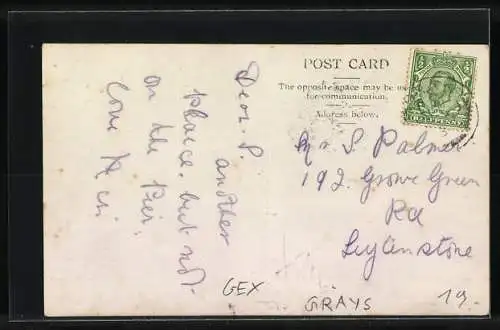 POST CARD
The opposite space may be used
for communication.
Address below.
HALFPENNY
Dear P.
another
place. but not
on the Pier.
Love
Mr S. Palmer
192. Grove Green
Rd
Leytonstone
GEX
GRAYS
19.